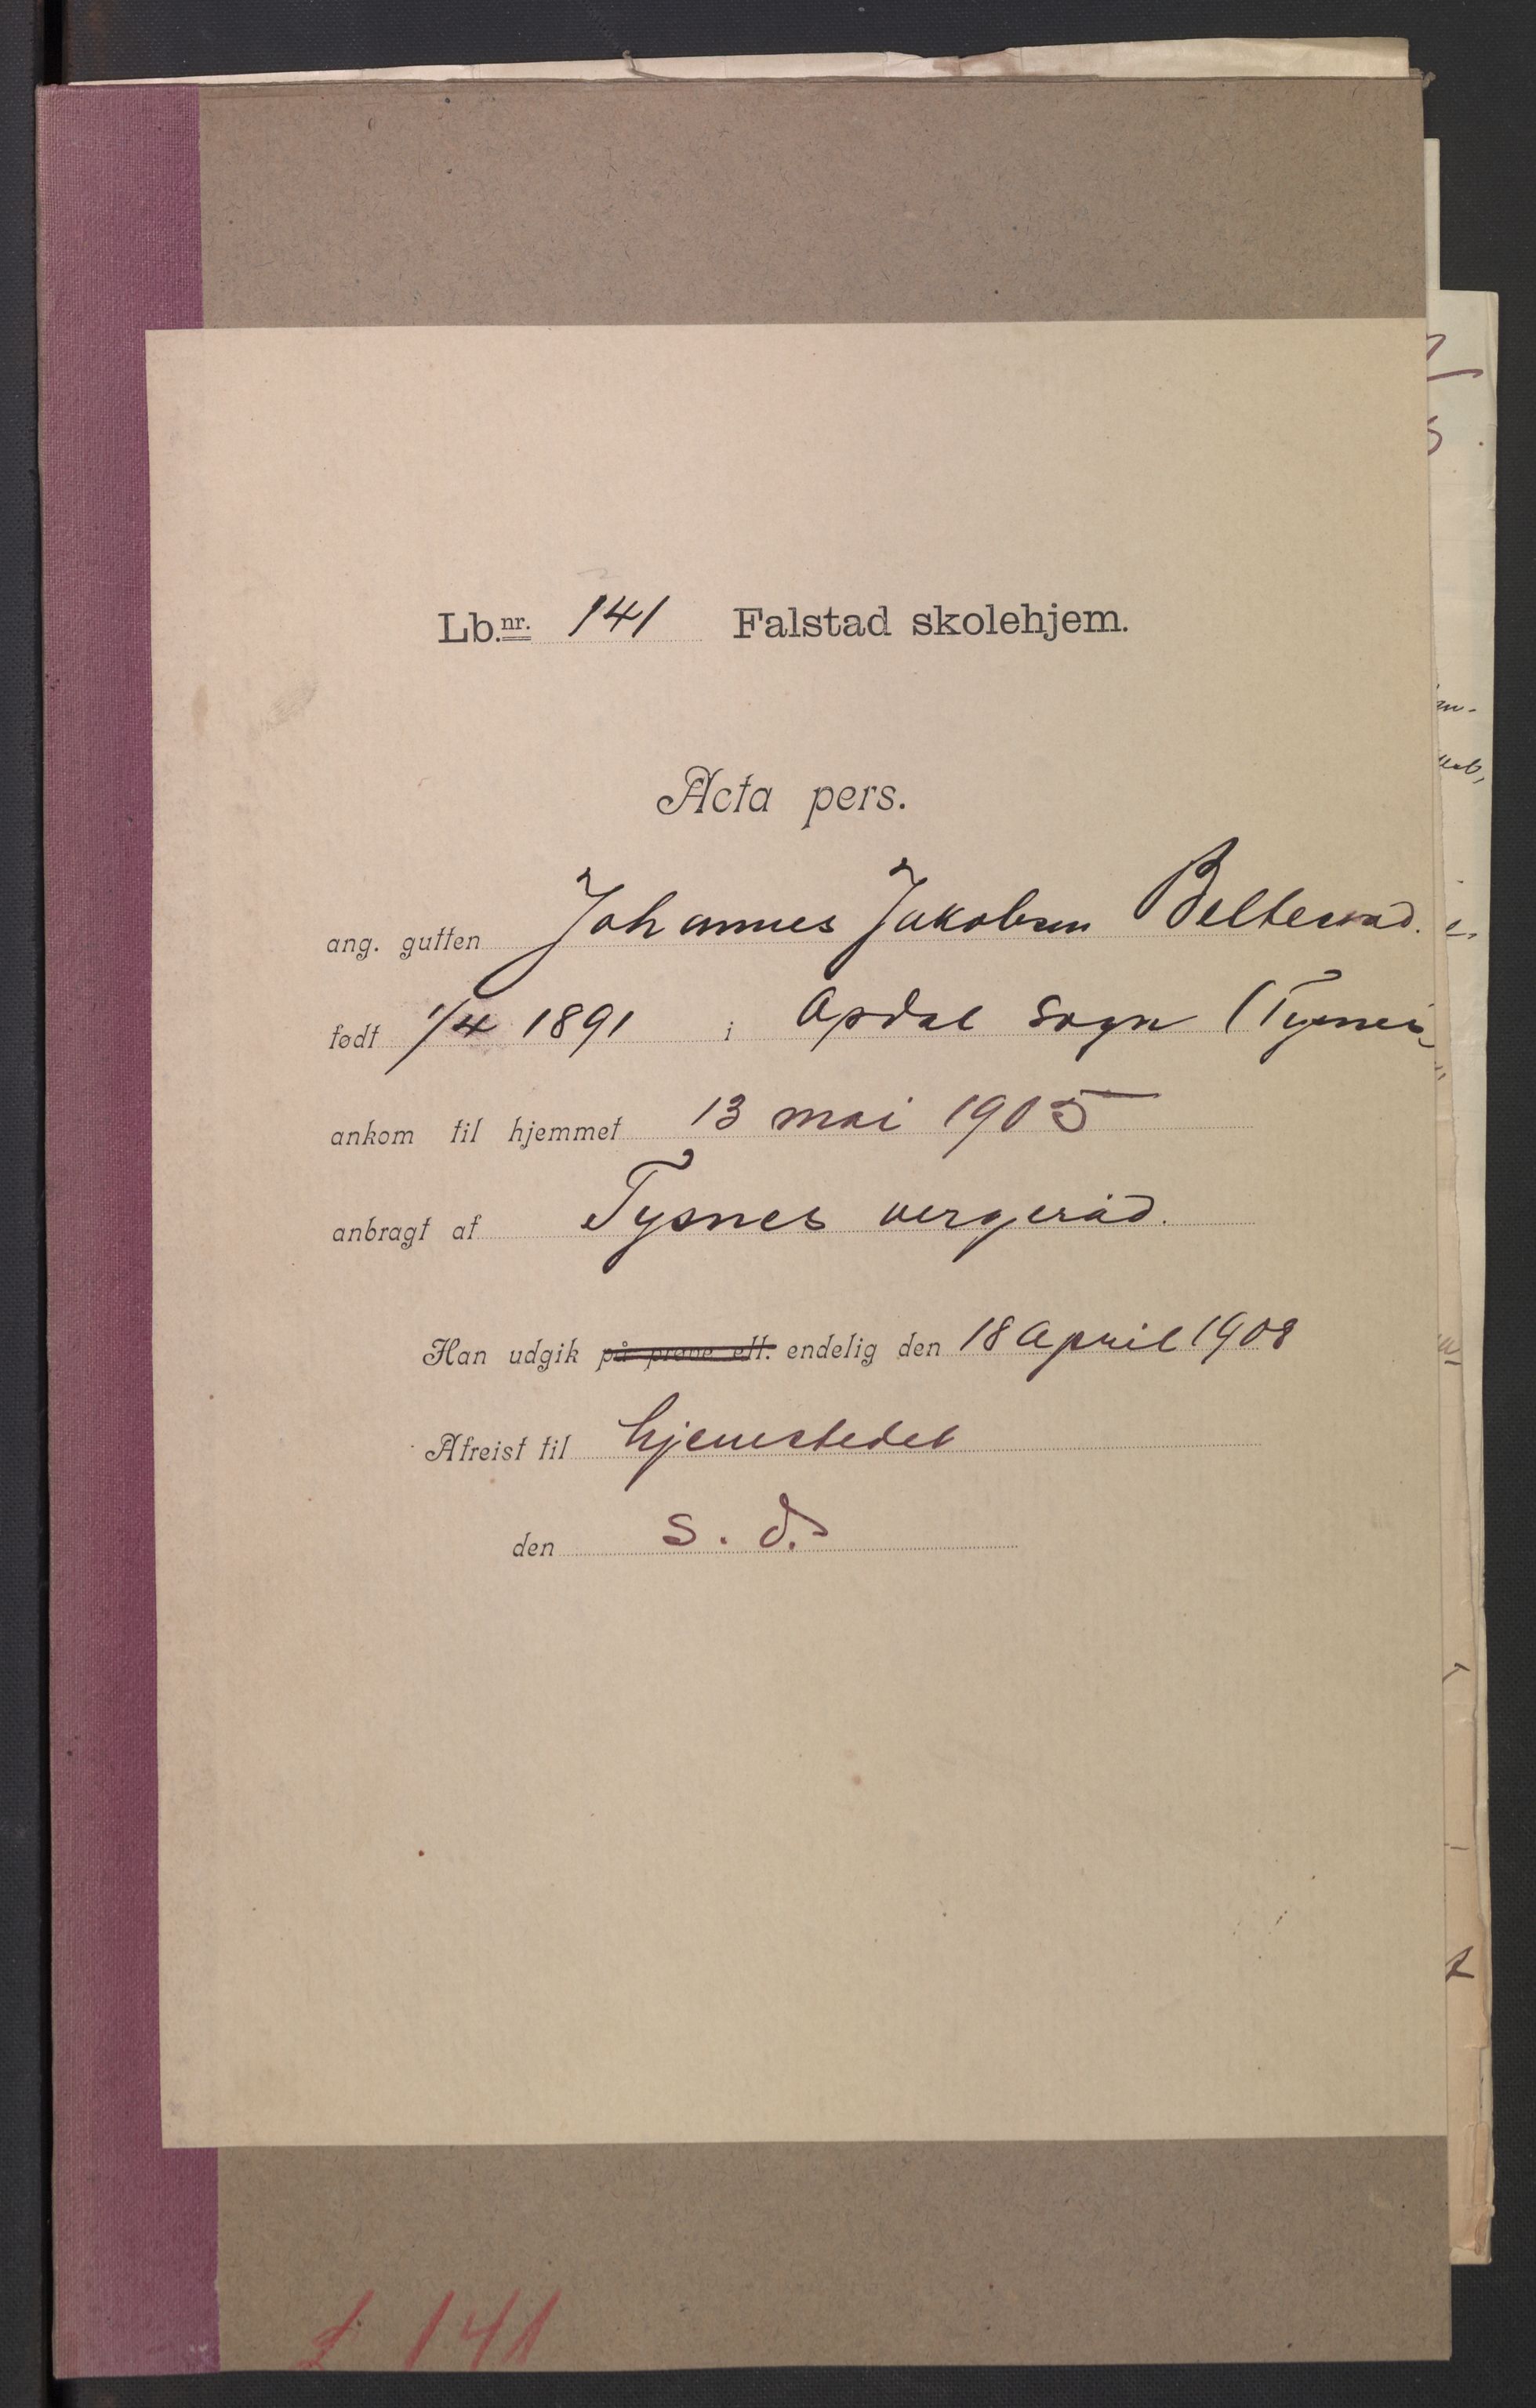 Lb.nr. 141 Falstad skolehjem.
Acta pers.
ang. gutten Johannes Jakobsen
født 1/4 1891 i Opdal sogn (Tysnes
ankom til hjemmet 13 mai 1905
anbragt af Tysnes vergeråd.
Han udgik på prøve ell. endelig den 18 April 1908
Afreist til hjemstedet
den s. d.
£ 141